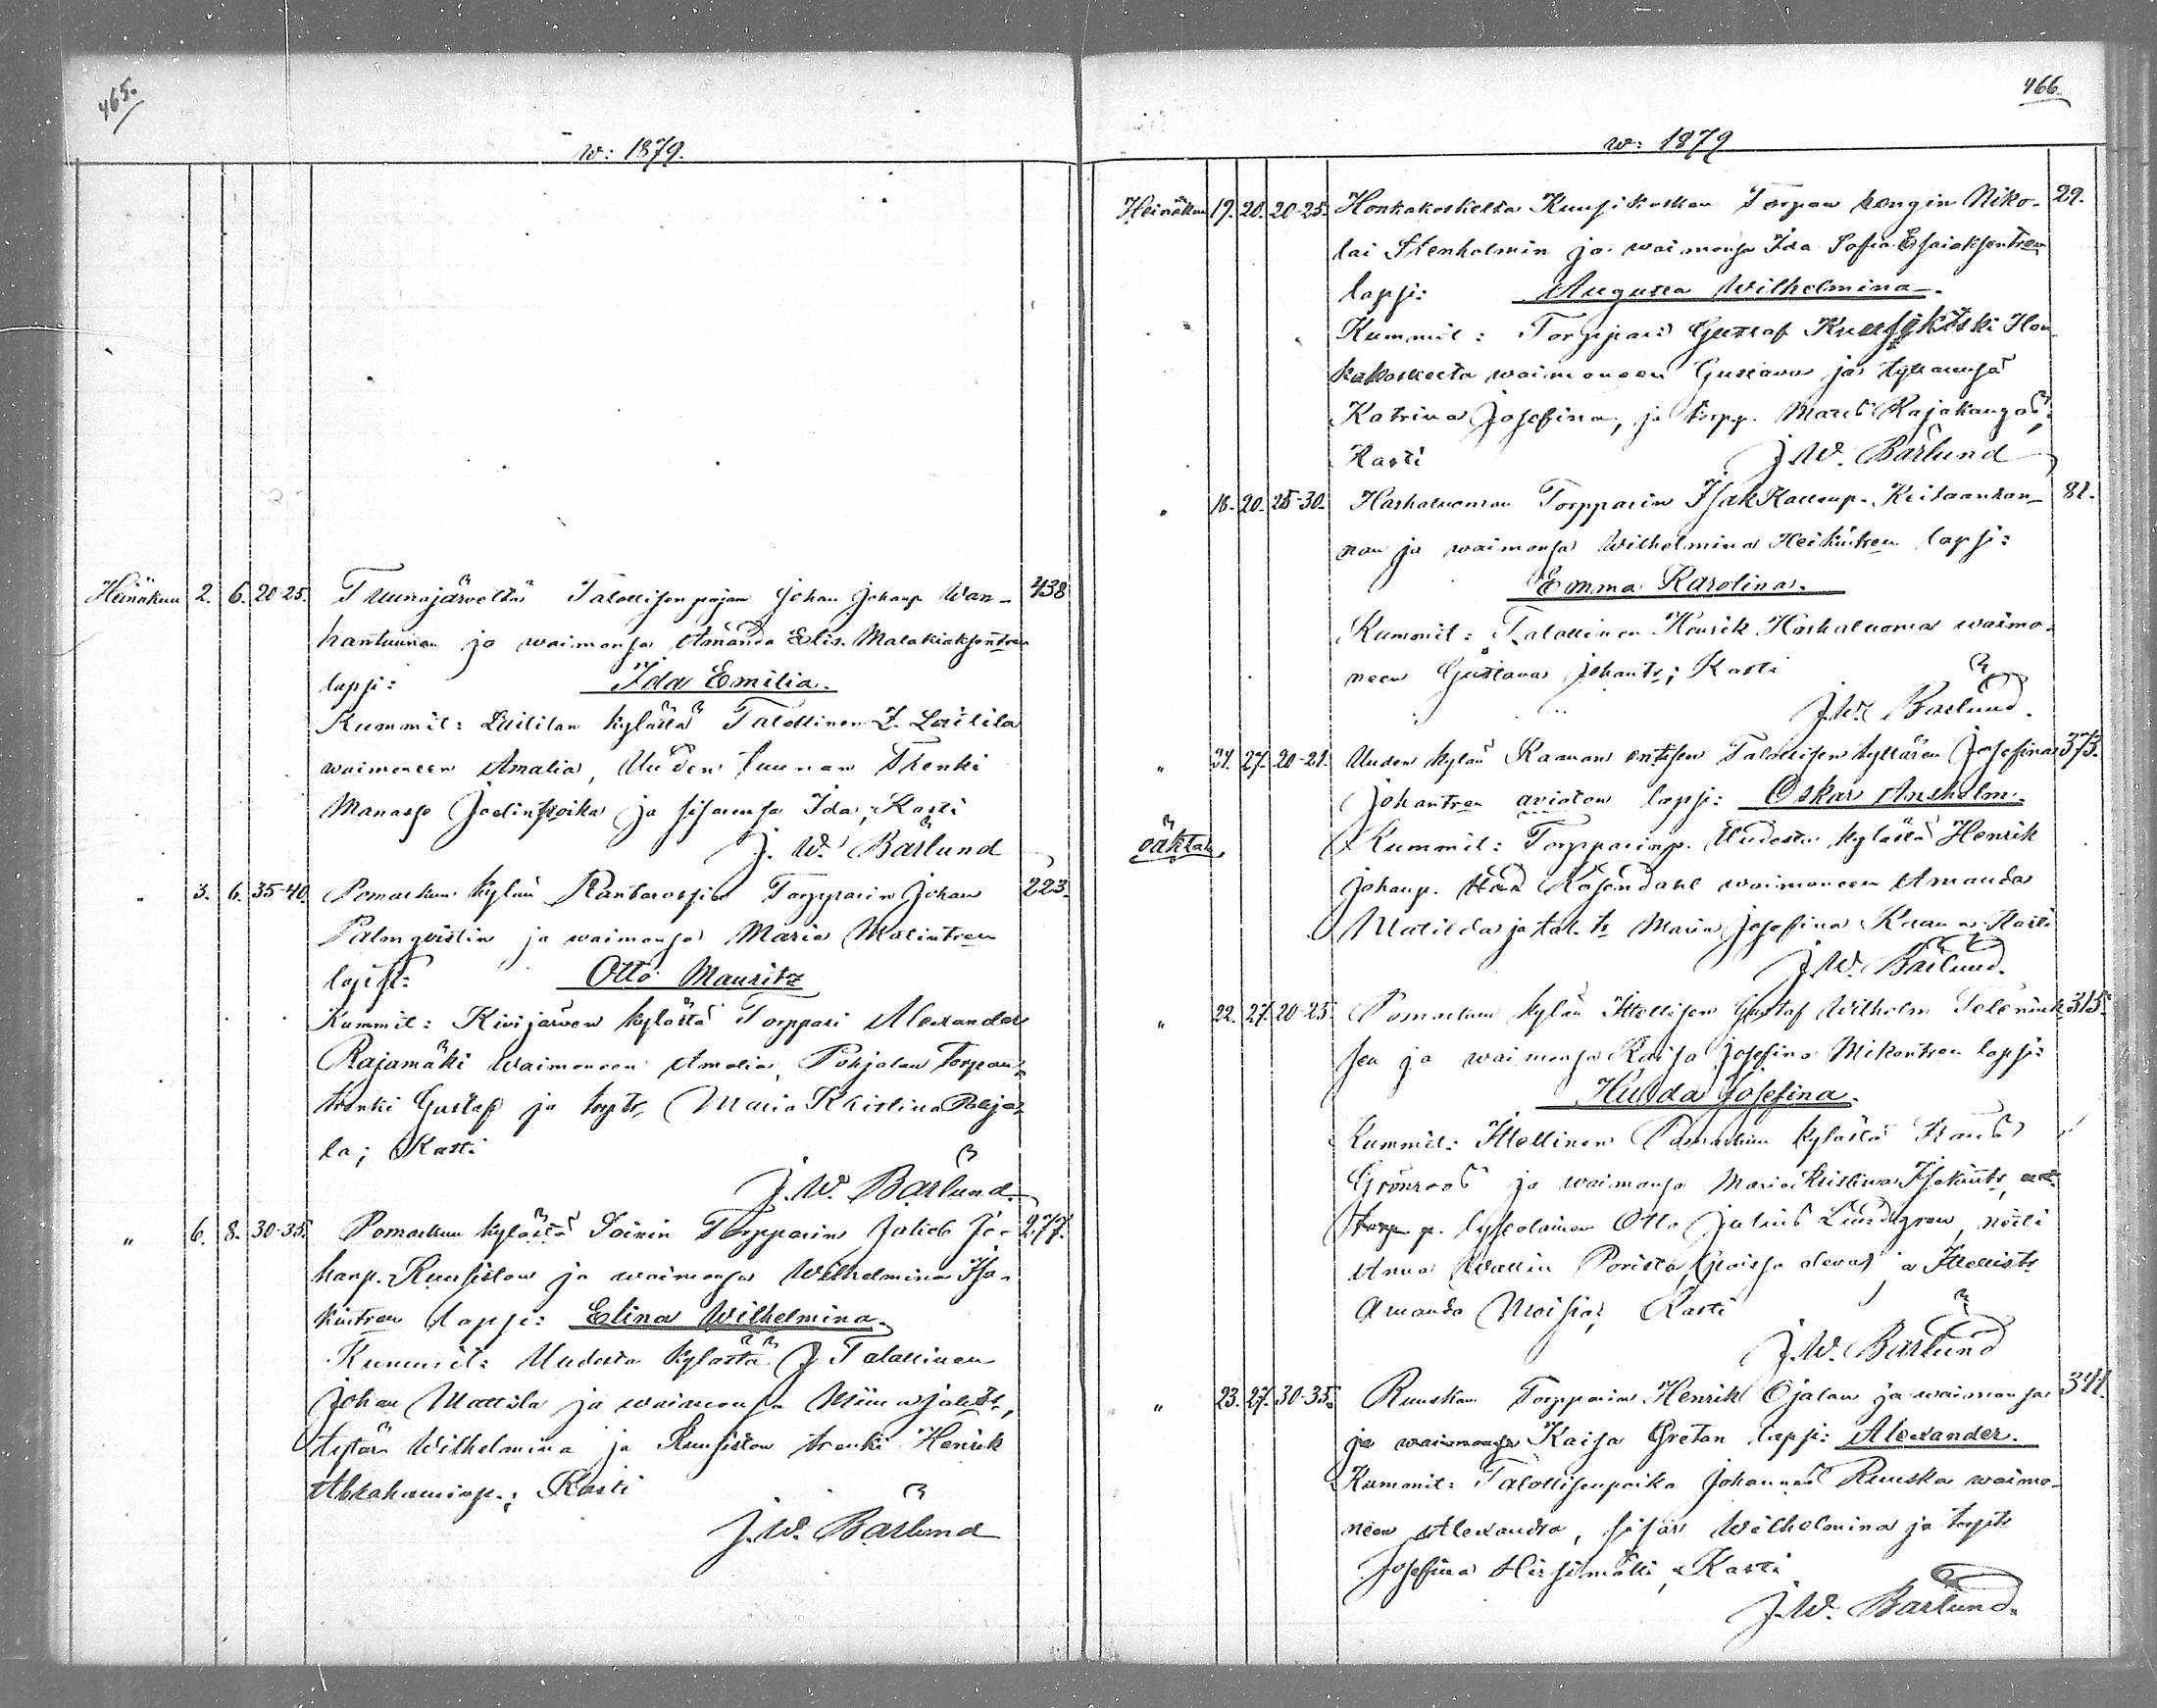 465.
w: 1879.
Heinäkuu 2. 6. 20-25. Tuunajärveltä Talollisen pojan Johan Johanp Wan- 438
hantuunan ja waimonsa Amanda Elis. Malakiaksentren
lapsi: Ida Emilia.
Kummit: Laililan kylästä Talollinen Z. Lailila
waimoneen Amalia, Uuden tuunan Trenki
Manasse Joelinpoika ja sisarensa Ida; Kasti
J. W. Bärlund
" 3. 6. 35-40. Pomarkun kylän Torpparin Johan 223.
Palmqvistin ja waimonsa Maria Malintren
lapsi: Otto Mauritz
Kummit: Kivijärwen kylästä Torppari Alexander
Rajamäki waimoneen Amalia, Pohjalan Torpan
trenki Gustaf ja torp ts. Maria Kristina Pohja-
la; Kasti
J. W. Bärlund.
" 6. 8. 30-35. Pomarkun kylästä Torpparin Jakob Jo- 277.
hanp. Kuusiston ja waimonsa Wilhelmina Isa-
kintren lapsi: Elina Wilhelmina.
Kummit: Uudesta kylästä Talollinen
Johan Mattila ja waimonsa Miina
tytär Wilhelmina ja Kuusiston trenki Henrik
Abrahaminp.; Kasti
J. W. Bärlund
466.
w: 1879
Heinäkuu 19. 20. 20-25. Honkakoskelta Kuusikosken Torpan rengin Niko- 22.
lai Stenholmin ja waimonsa Ida Sofia Esaiaksentren
lapsi: Augusta Wilhelmina.
Kummit: Torppari Gustaf Kuusikoski Hon-
kakoskelta waimoneen Gustava ja tyttärensä
Katrina Josefina, ja torpp. Rajakangas;
Kasti J. W. Bärlund
" 18. 20. 25-30. Harhaluoman Torpparin Isak Kallenp. Keitaanran- 82.
nan ja waimonsa Wilhelmina Heikintren lapsi:
Emma Karolina.
Kummit: Talollinen Henrik Harhaluoma waimo-
neen Gustava Johants; Kasti
J. W. Bärlund.
" 21. 27. 20-21. Uuden kylän Raanan entisen Talollisen tyttären Josefina 373.
Johantren avioton lapsi: Oskar Anshelm.
oäkta
Kummit: Torpparinp. Uudesta kylästä Henrik
Johanp. Rosendahl waimoneen Amanda
Matilda ja tal. ts Maria Josefina Raana; Kasti
J. W. Bärlund.
" 22. 27. 20-25. Pomarkun kylän Itsellisen Gustaf Wilhelm 315.
sen ja waimonsa Kaisa Josefina Mikontren lapsi:
Hulda Josefina.
Kummit: Itsellinen Pomarkun kylästä Frans
Grönroos ja waimonsa Maria Kristina Isakints,
Otto Julius Lindegren, neiti
Anna Wallin Porista, ja Itsellists
Amanda Moisio; Kasti
J. W. Bärlund
" 23. 27. 30-35. Ruuskan Torpparin Henrik Ojalan ja waimonsa 344.
ja waimonsa Kaisa Gretan lapsi: Alexander.
Kummit: Talollisenpoika Johannes Ruuska waimo-
neen Alexandra, sisar Wilhelmina ja torpts
Josefina Hirsimäki, Kasti
J. W. Bärlund.